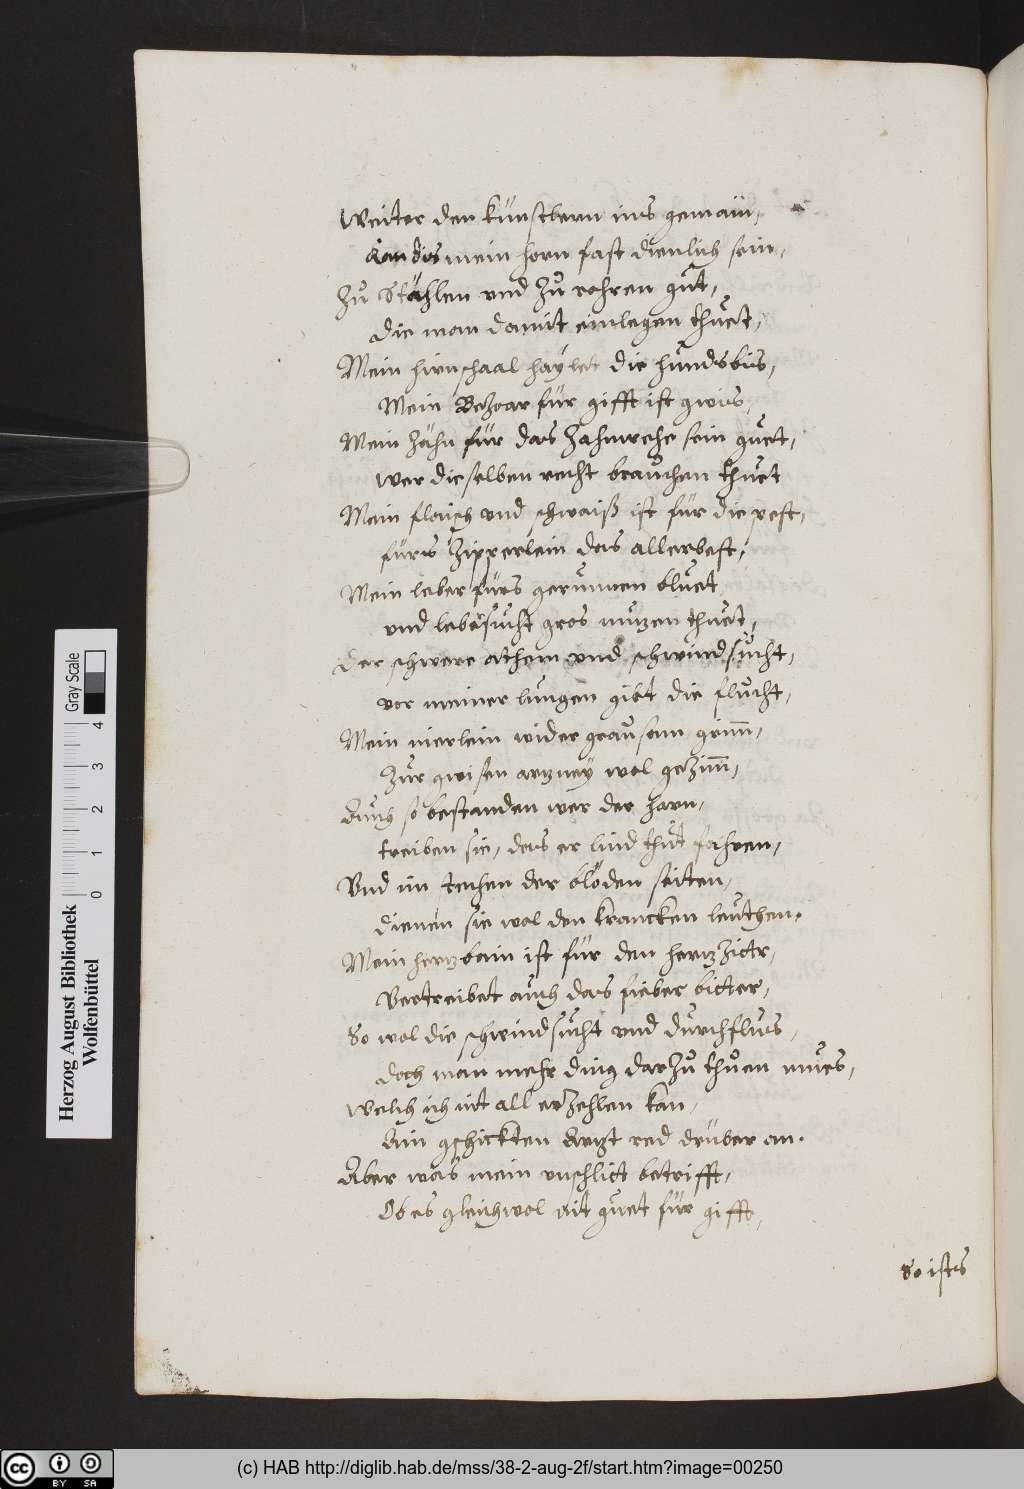 Weiter den künstlern ins gemain,
kan dis mein horn fast dienlich sein,
Zu Stählen und Zu rohren gut,
die man damit einlegen thuet,
Mein hirnschaal haylet die hundsbis,
Mein Bezoar für gifft ist gwis,
Mein Zähn für das Zahnwehe sein guet,
wer dieselben recht brauchen thuet
Mein flaisch und schwaiß ist für die pest,
fürs Zipperlein das allerbest,
Mein leber fürs gerunnen bluet
und lebersucht gros nuzen thuet,
der schwere athem und schwindsucht,
vor meiner lungen gibt die flucht,
Mein nierlein wider grausam grimm,
Zur gwisen arzney wol gezimm,
Auch so bestanden wer der harn,
treiben sie, das er lind thut fahren,
Vnd im stechen der blöden seitten,
dienen sie wol den krancken leuthen.
Mein herzbain ist für den herzzittr,
Vertreibet auch das fieber bitter,
So wol die schwindsucht und durchflus,
doch man mehr ding darzu thuen mues,
Welch ich nit all erzehlen kan,
Ain gschickten Arzt red drüber an.
Aber was mein unschlitt betrifft,
Ob es gleichwol nit guet für gifft,
So ists
Herzog August Bibliothek
Wolfenbüttel
0 1 2 3 4
Gray Scale
cc BY SA
(c) HAB http://diglib.hab.de/mss/38-2-aug-2f/start.htm?image=00250